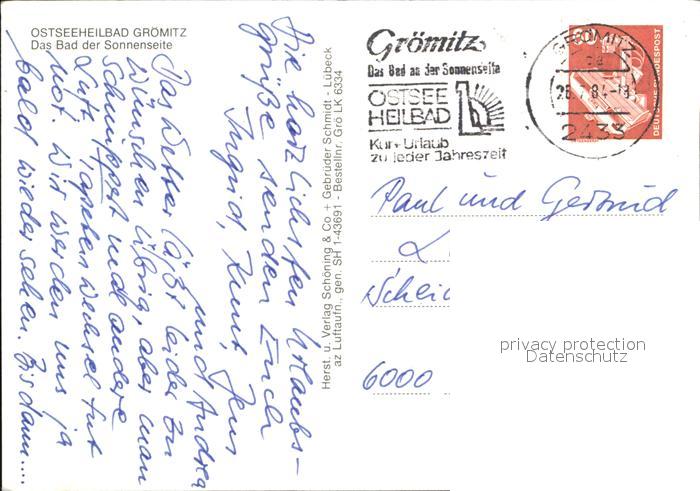 OSTSEEHEILBAD GRÖMITZ
Das Bad der Sonnenseite
Die herzlichsten Urlaubs-
grüße senden Euch
Ingrid, Kunt, Jens
und Andrea
Das Wetter läßt leider zu
wünschen übrig, aber man
schnuppert mal andere
Luft. Tapetenwechsel tut
not. Wir werden uns ja
bald wieder sehen. Bis dann....
Herst. u. Verlag Schöning & Co + Gebrüder Schmidt - Lübeck
az Luftaufn., gen. SH 1-43691 - Bestellnr. Grö LK 6334
Grömitz
Das Bad an der Sonnenseite
OSTSEE
HEILBAD
Kur+Urlaub
zu jeder Jahreszeit
GRÖMITZ
2433
DEUTSCHE BUNDESPOST
Paul und Gertrud
6000
privacy protection
Datenschutz